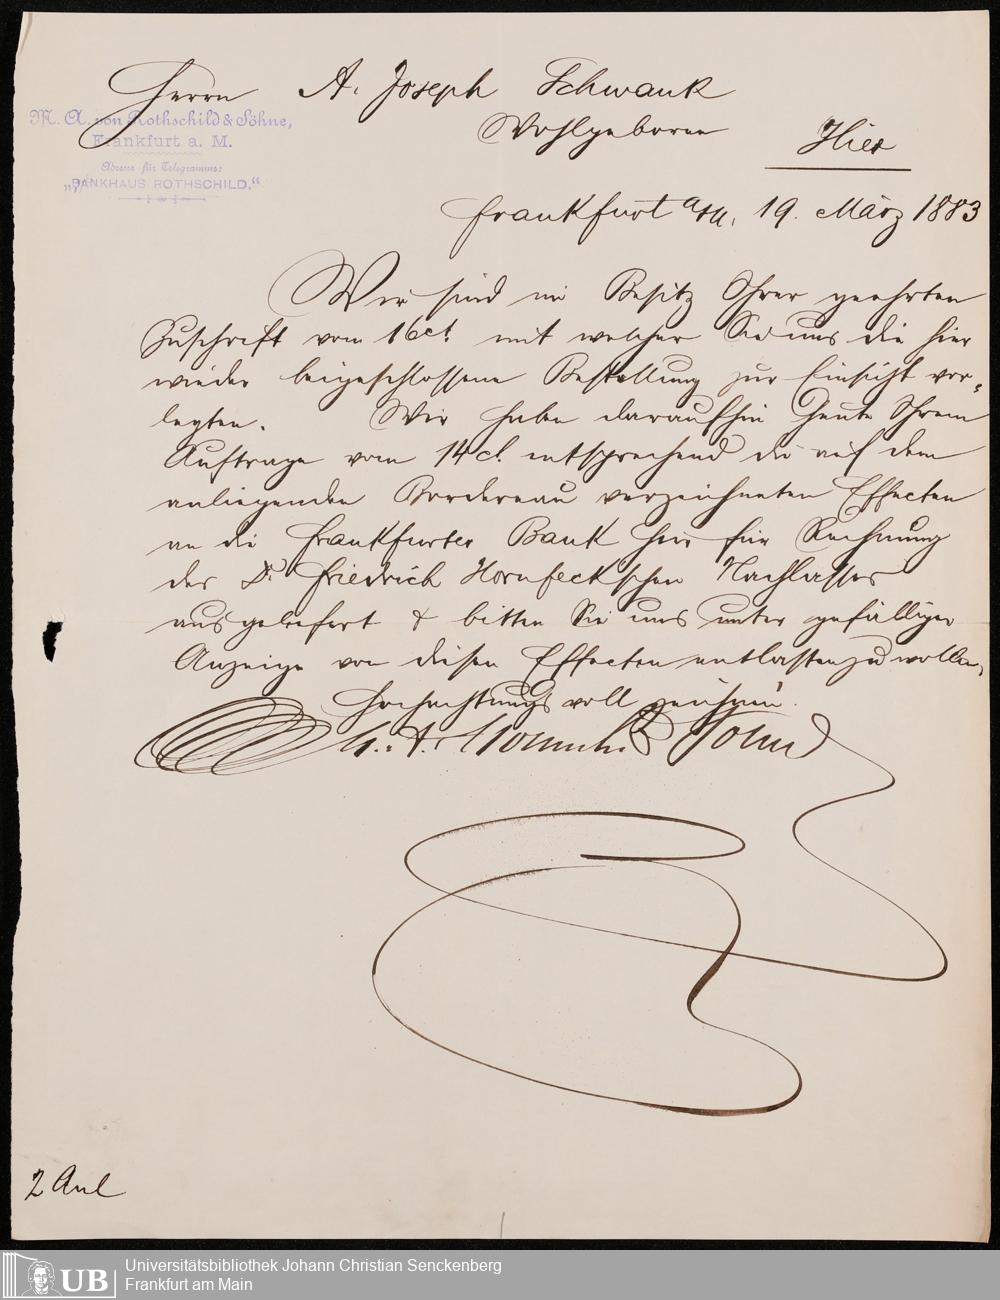 Herrn A. Joseph Schwank
Wohlgeboren
Hier
M. A. von Rothschild & Söhne,
Frankfurt a. M.
Adresse für Telegramme:
„BANKHAUS ROTHSCHILD."
Frankfurt a/M. 19. März 1883
Wir sind im Besitz Ihrer geehrten
Zuschrift vom 16 ct. mit welcher Sie uns die hier
wieder beigeschlossene Bestallung zur Einsicht vor-
legten. Wir haben daraufhin heute Ihrem
Auftrage vom 14 ct. entsprechend die auf dem
anliegenden Bordereau verzeichneten Effecten
an die Frankfurter Bank hier für Rechnung
des Dr. Friedrich Hornfeck'schen Nachlasses
ausgeliefert & bitten Sie uns unter gefälliger
Anzeige von diesen Effecten entlasten zu wollen.
Hochachtungsvoll zeichnen
M. A. v. Rothschild & Söhne
2 Anl
UB
Universitätsbibliothek Johann Christian Senckenberg
Frankfurt am Main